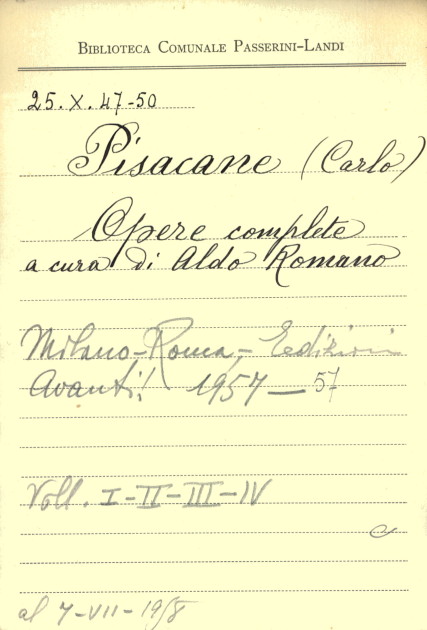 BIBLIOTECA COMUNALE PASSERINI-LANDI
25. X. 47-50
Pisacane (Carlo)
Opere complete
a cura di Aldo Romano
Milano-Roma, Edizioni
Avanti! 1957 — 57
Voll. I-II-III-IV
al 7-VII-